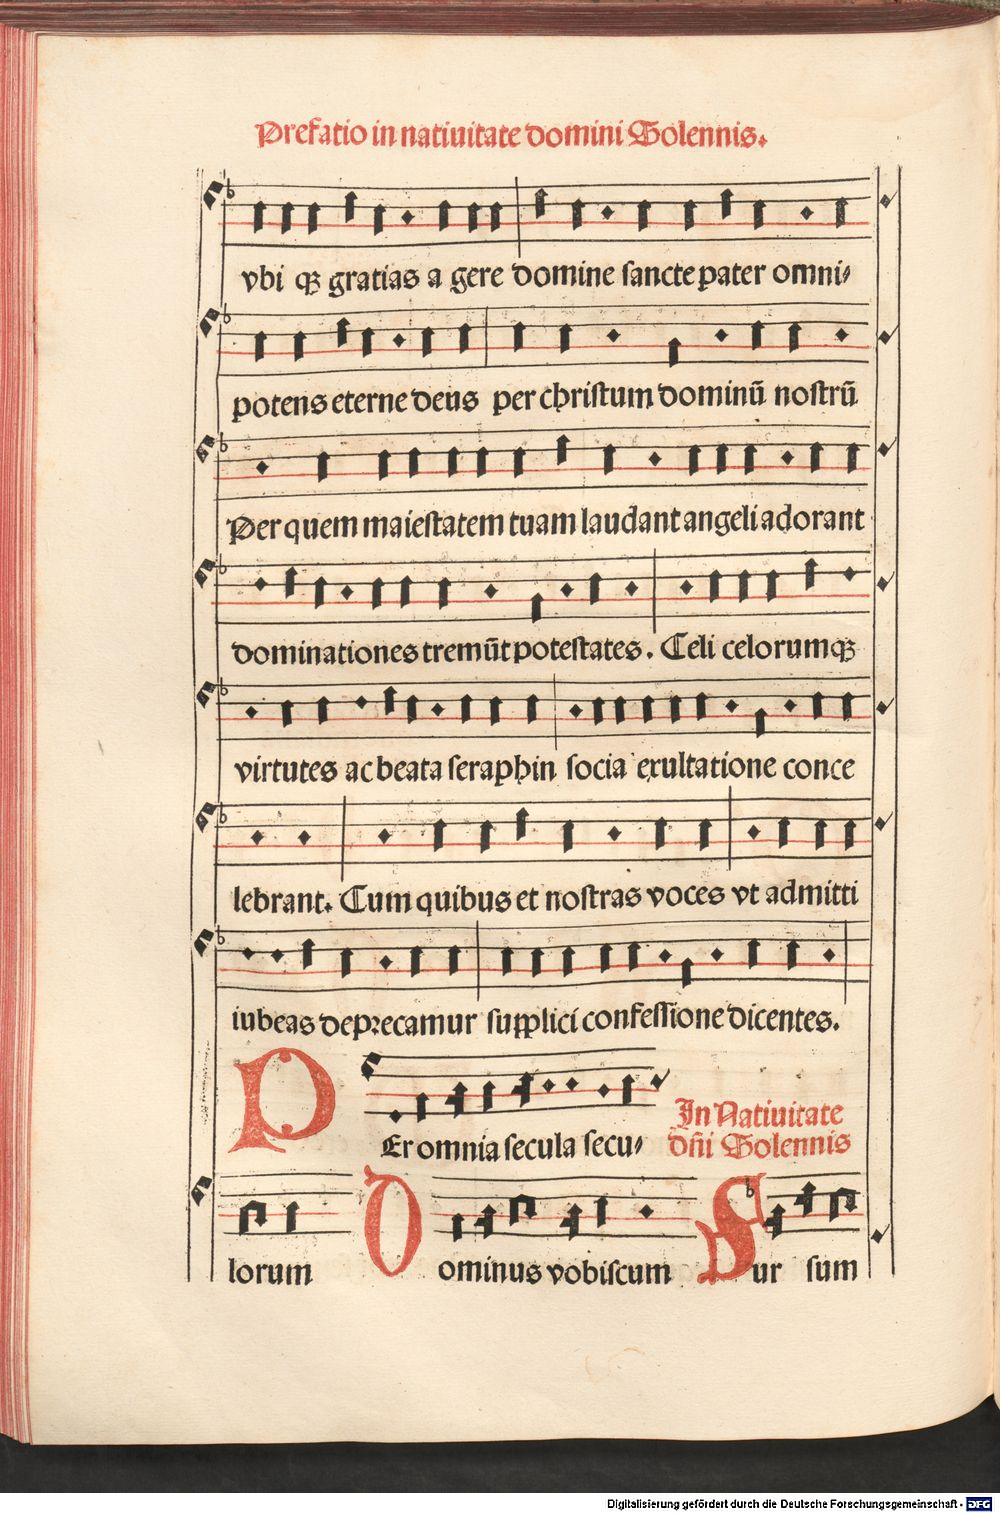 Prefatio in natiuitate domini Solennis.
vbi qꝫ gratias a gere domine sancte pater omni⸗
potens eterne deus per christum dominū nostrū
Per quem maiestatem tuam laudant angeli adorant
dominationes tremūt potestates. Celi celorumqꝫ
virtutes ac beata seraphin socia exultatione conce
lebrant. Cum quibus et nostras voces vt admitti
iubeas deprecamur supplici confessione dicentes.
PEr omnia secula secu⸗
In Natiuitate
dn̄i Solennis
lorum Dominus vobiscum Sur sum
Digitalisierung gefördert durch die Deutsche Forschungsgemeinschaft - DFG